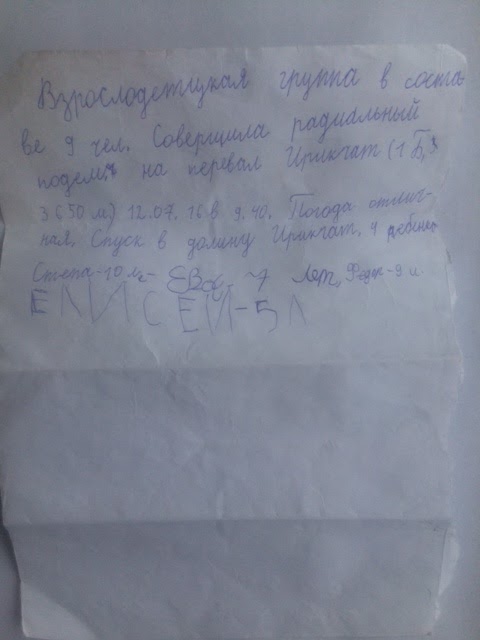 Взрослодетцкая группа в соста-
ве 9 чел. Совершила радиальный
подемъ на перевал Ирикчат (1Б, 3
3650 м) 12.07.16 в 9.40. Погода отлич-
ная. Спуск в долину Ирикчат. 4 ребенка
Степа-10 л. Ева - 7 лет, Федя - 9 и
ЕЛИСЕЙ-5Л